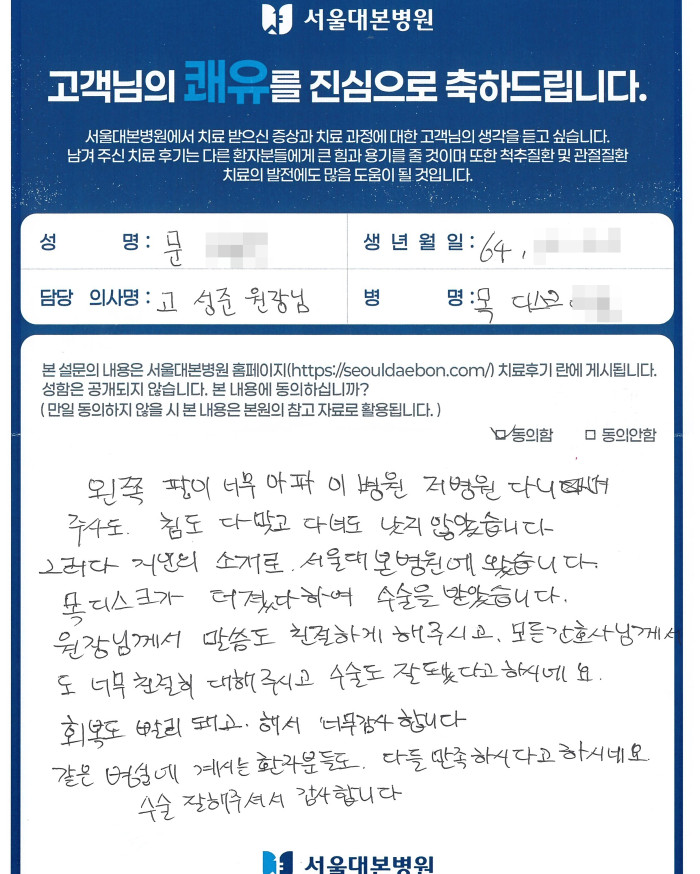 서울대본병원
고객님의 쾌유를 진심으로 축하드립니다.
서울대본병원에서 치료 받으신 증상과 치료 과정에 대한 고객님의 생각을 듣고 싶습니다.
남겨 주신 치료 후기는 다른 환자분들에게 큰 힘과 용기를 줄 것이며 또한 척추질환 및 관절질환
치료의 발전에도 많음 도움이 될 것입니다.
성 명 : 문
생 년 월 일 : 64.
담당 의사명 : 고 성준 원장님
병 명 : 목 디스크
본 설문의 내용은 서울대본병원 홈페이지(https://seouldaebon.com/) 치료후기 란에 게시됩니다.
성함은 공개되지 않습니다. 본 내용에 동의하십니까?
( 만일 동의하지 않을 시 본 내용은 본원의 참고 자료로 활용됩니다. )
☑ 동의함 □ 동의안함
왼쪽 팔이 너무 아파 이 병원 저병원 다니며
주사도. 침도 다 맞고 다녀도 낫지 않았습니다
그러다 지인의 소개로. 서울대본병원에 왔습니다.
목디스크가 터졌다하여 수술을 받았습니다.
원장님께서 말씀도 친절하게 해주시고. 모든간호사님께서
도 너무 친절히 대해주시고 수술도 잘됐다고 하시네요.
회복도 빨리 돼고. 해서 너무감사합니다
같은 병실에 계시는 환자분들도. 다들 만족하시다고 하시네요
수술 잘해주셔서 감사합니다
서울대본병원